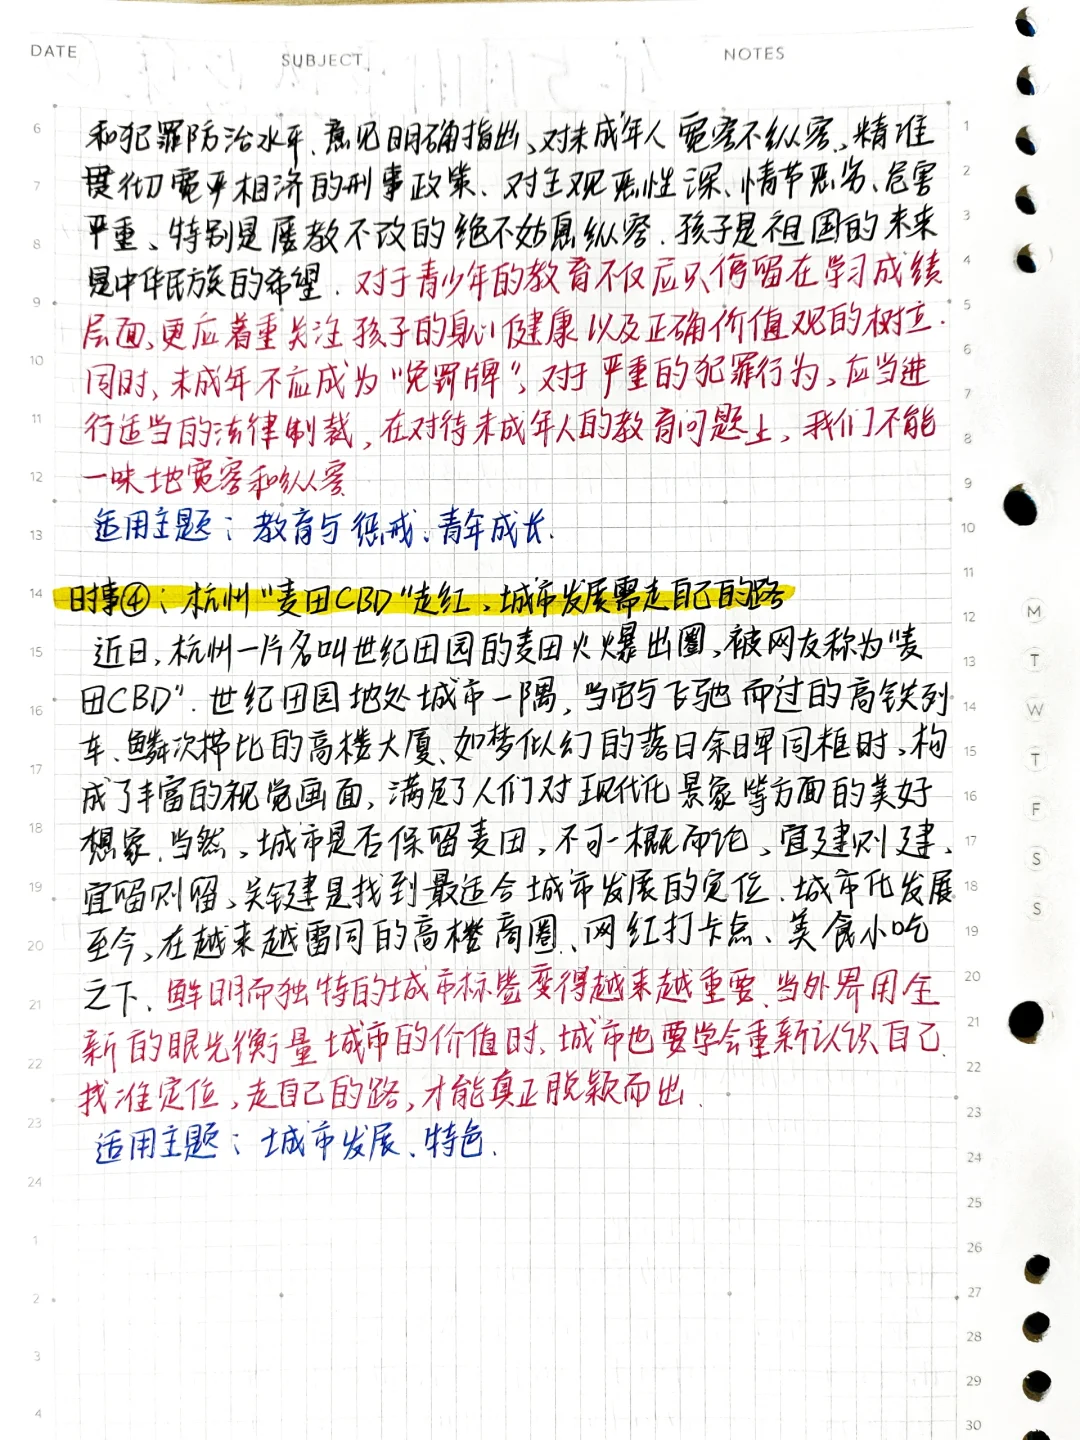 DATE
SUBJECT
NOTES
和犯罪防治水平、意见明确指出,对未成年人宽容不纵容,精准
贯彻宽严相济的刑事政策、对主观恶性深、情节恶劣、危害
严重、特别是屡教不改的绝不姑息纵容.孩子是祖国的未来
是中华民族的希望.对于青少年的教育不仅应只停留在学习成绩
层面,更应着重关注孩子的身心健康以及正确价值观的树立.
同时,未成年不应成为“免罪牌”,对于严重的犯罪行为,应当进
行适当的法律制裁,在对待未成年人的教育问题上,我们不能
一味地宽容和纵容
适用主题:教育与惩戒、青年成长.
时事④:杭州“麦田CBD”走红、城市发展需走自己的路
近日,杭州一片名叫世纪田园的麦田火爆出圈,被网友称为“麦
田CBD”.世纪田园地处城市一隅,当它与飞驰而过的高铁列
车、鳞次栉比的高楼大厦、如梦似幻的落日余晖同框时,构
成了丰富的视觉画面,满足了人们对现代化景象等方面的美好
想象.当然,城市是否保留麦田,不可一概而论,宜建则建、
宜留则留,关键是找到最适合城市发展的定位.城市化发展
至今,在越来越雷同的高楼商圈、网红打卡点、美食小吃
之下、鲜明而独特的城市标签变得越来越重要.当外界用全
新的眼光衡量城市的价值时、城市也要学会重新认识自己.
找准定位,走自己的路,才能真正脱颖而出.
适用主题:城市发展、特色.
6
7
8
9
10
11
12
13
14
15
16
17
18
19
20
21
22
23
24
1
2
3
4
1
2
3
4
5
6
7
8
9
10
11
12
13
14
15
16
17
18
19
20
21
22
23
24
25
26
27
28
29
30
M
T
W
T
F
S
S